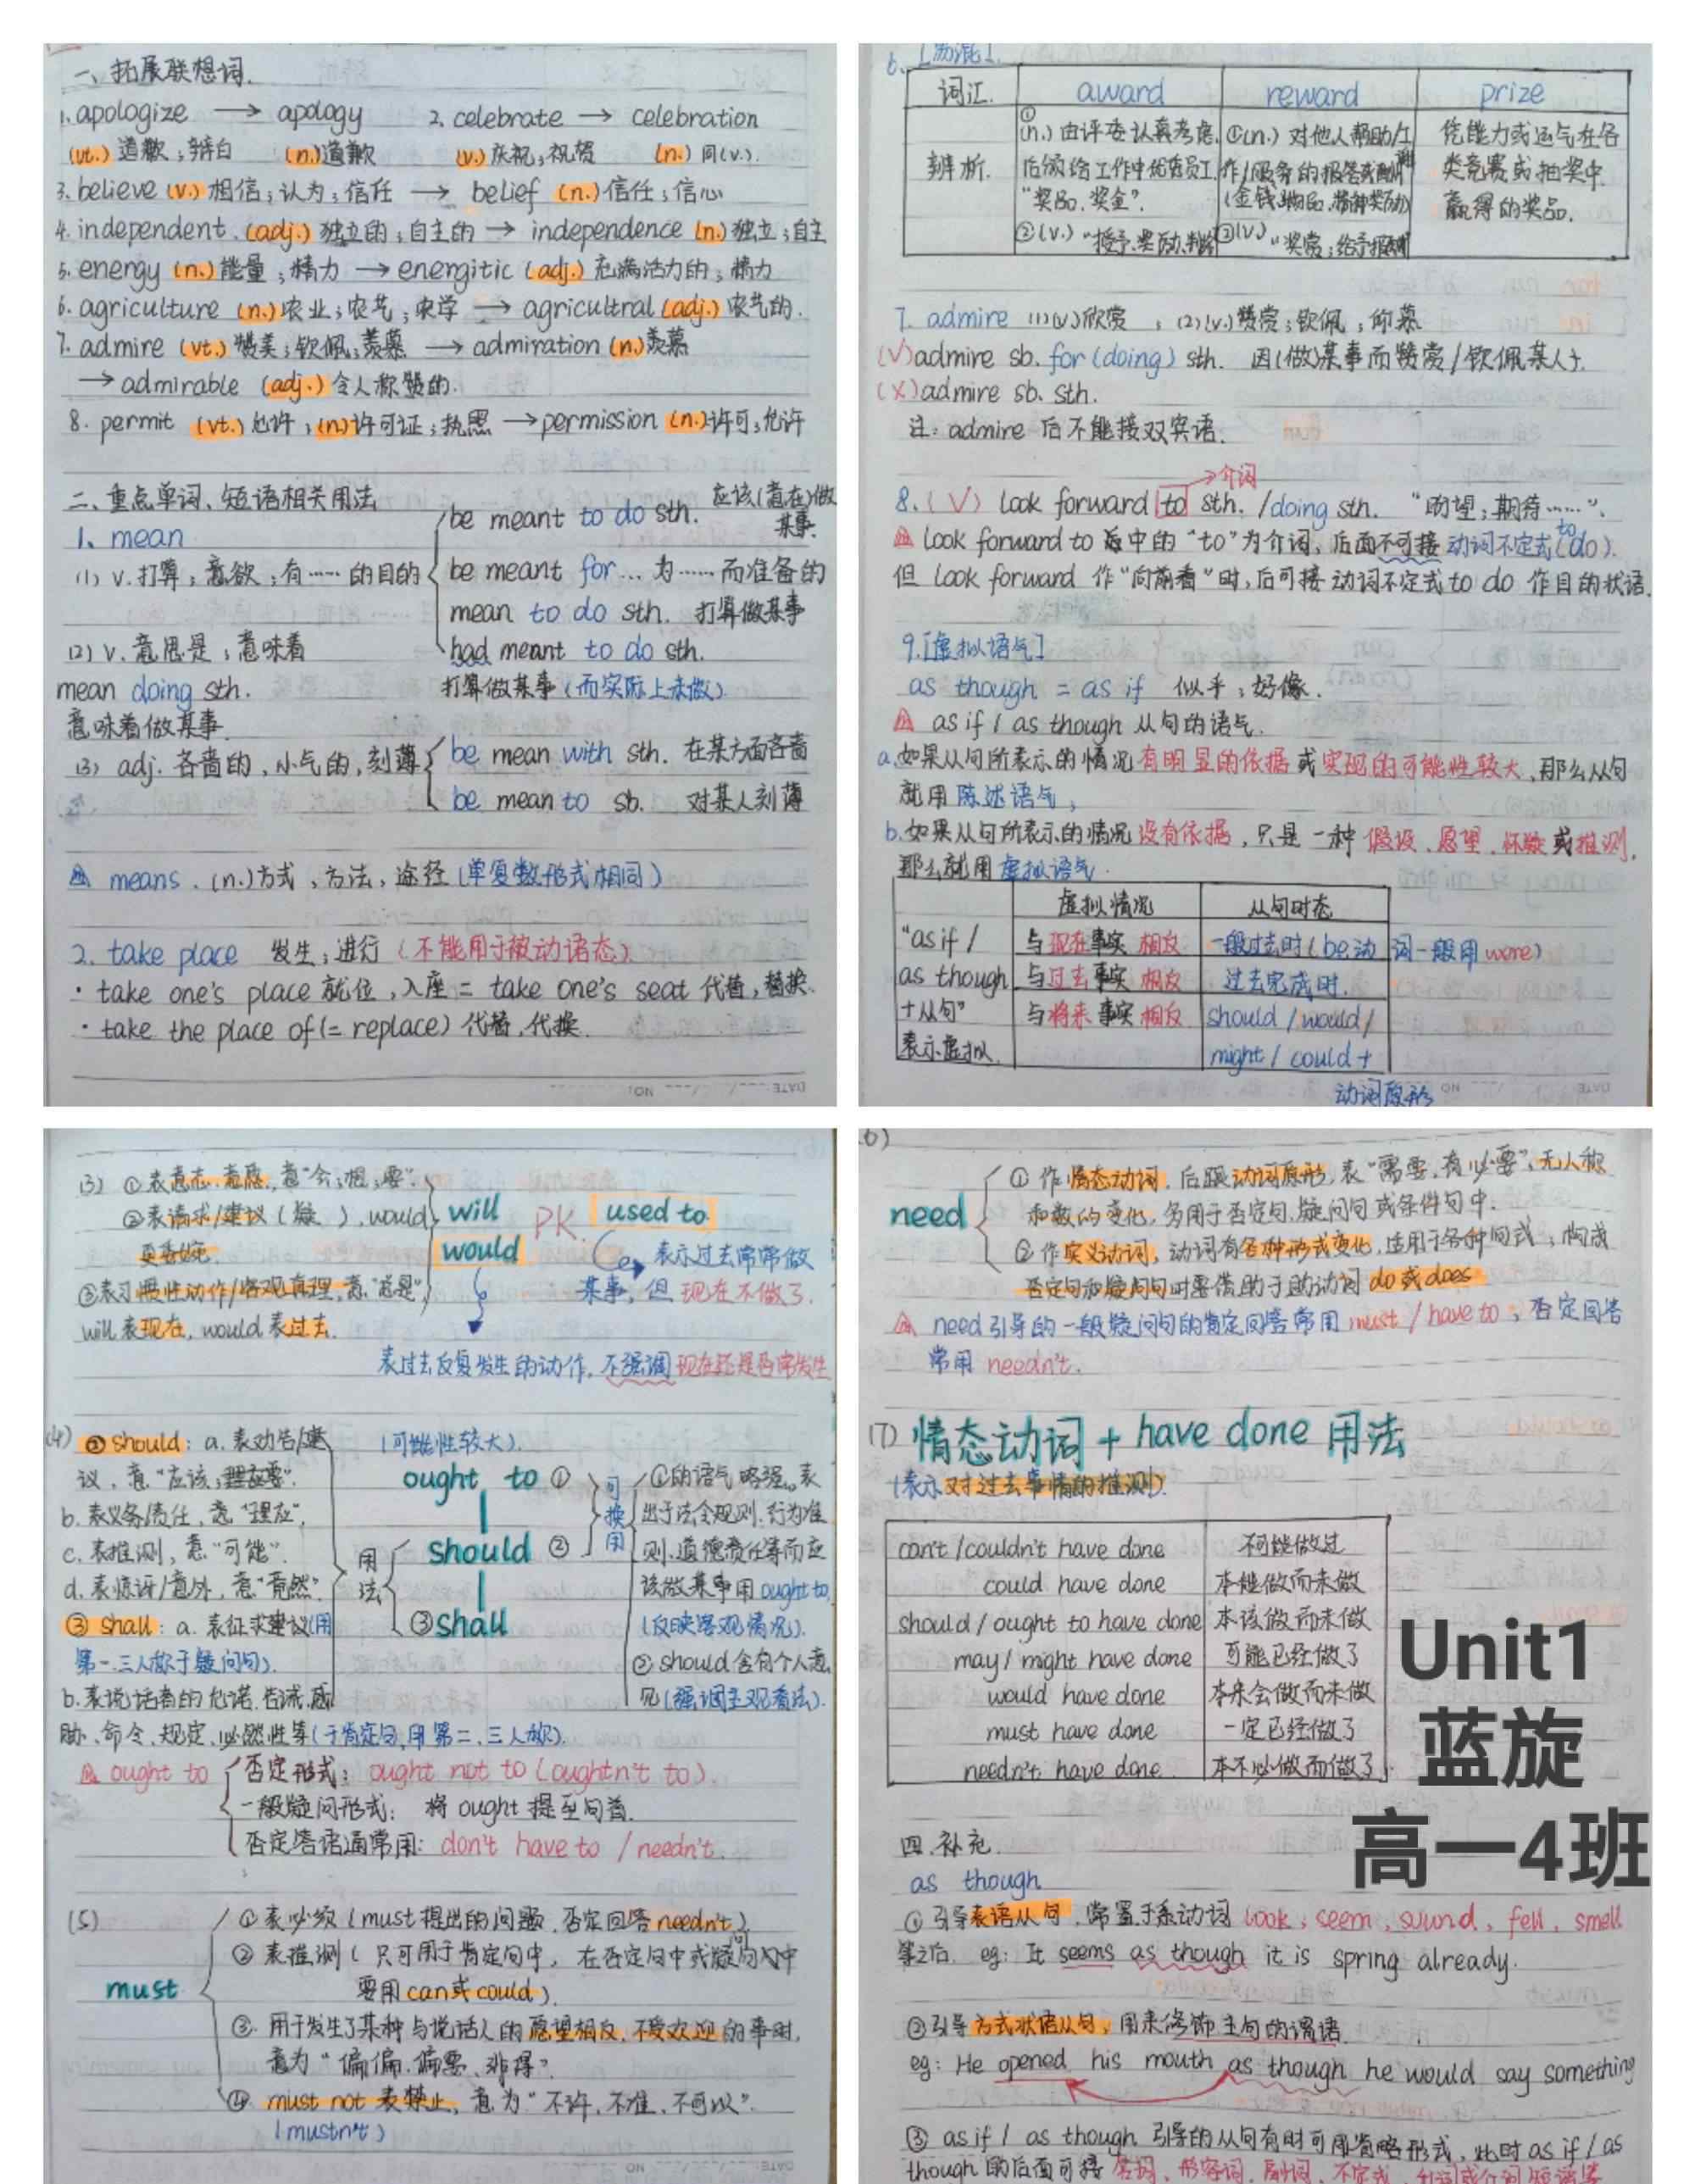 一、拓展联想词.
1.apologize → apology 2. celebrate → celebration
(vt.) 道歉;辩白 (n.)道歉 (v.)庆祝;祝贺 (n.) 同(v.).
3. believe (v.) 相信;认为;信任 → belief (n.)信任;信心
4. independent. (adj.) 独立的;自主的 → independence (n.)独立;自主
5. energy (n.)能量;精力 → energitic (adj.) 充满活力的;精力
6. agriculture (n.)农业;农艺;农学 → agricultral (adj.) 农艺的.
7. admire (vt.) 赞美;钦佩;羡慕 → admiration (n.)羡慕
→ admirable (adj.) 令人称赞的.
8. permit (vt.) 允许;(n.)许可证;执照 → permission (n.)许可;允许
二、重点单词、短语相关用法
1、mean
be meant to do sth. 应该(意在)做某事
(1) v. 打算;意欲;有……的目的
be meant for… 为……而准备的
mean to do sth. 打算做某事
(2) v. 意思是;意味着
had meant to do sth.
mean doing sth.
打算做某事(而实际上未做)
意味着做某事.
(3) adj. 吝啬的,小气的,刻薄
be mean with sth. 在某方面吝啬
be mean to sb. 对某人刻薄
means. (n.)方式,方法,途径(单复数形式相同)
2. take place 发生;进行(不能用于被动语态)
· take one's place 就位,入座 = take one's seat 代替,替换.
· take the place of (= replace) 代替,代换.
DATE NO:
6.
词汇. award reward prize
辨析.
①(n.) 由评委认真考虑.后颁给工作中优秀员工."奖品.奖金".
②(v.) "授予.奖励.
①(n.) 对他人帮助/工作/服务的报答或
②(v.) "奖赏;给予报酬
凭能力或运气在各类竞赛或抽奖中赢得的奖品.
7. admire (1)(v.)欣赏 ;(2)(v.)赞赏;钦佩;仰慕
(√)admire sb. for (doing) sth. 因(做)某事而赞赏/钦佩某人.
(×)admire sb. sth.
注: admire 后不能接双宾语.
→介词
8. (√) look forward to sth. /doing sth. "盼望;期待……".
look forward to 中的"to"为介词,后面不可接动词不定式(to do).
但 look forward 作"向前看"时,后可接动词不定式 to do 作目的状语.
9.[虚拟语气]
as though = as if 似乎;好像.
as if / as though 从句的语气.
a.如果从句所表示的情况有明显的依据或实现的可能性较大,那么从句
就用陈述语气;
b.如果从句所表示的情况没有依据,只是一种假设、愿望、怀疑或推测,
那么就用虚拟语气.
虚拟情况 从句时态
"as if / as though +从句"表示虚拟.
与现在事实相反 一般过去时(be动词一般用were)
与过去事实相反 过去完成时.
与将来事实相反 should / would / might / could + 动词原形
DATE NO
(3) ①表意志.意愿,意"会;想;要".
②表请求/建议(疑 ),would
更委婉.
③表习惯性动作/客观真理,意"总是"
will表现在,would表过去.
will PK. used to
would
表示过去常常做
某事,但现在不做了.
表过去反复发生的动作,不强调现在还是否常发生
(4) ②should: a. 表劝告/建
议,意"应该;
b. 表义务/责任,意"理应";
c. 表推测,意"可能".
d. 表惊讶/意外,意"竟然".
③ shall: a. 表征求建议(用
第一.三人称于疑问句).
b. 表说话者的允诺.告诫.威
胁、命令、规定、必然性等(于肯定句,用第二、三人称).
用法
(可能性较大).
ought to ①
should ②
③shall
可换用
①的语气略强。表
出于法令规则.行为准
则.道德责任等而应
该做某事用ought to
(反映客观情况).
②should含有个人意
见(强调主观看法).
ought to
否定形式: ought not to (oughtn't to).
一般疑问形式: 将 ought 提至句首.
否定答语通常用: don't have to / needn't.
(5) must
①表必须(must提出的问题.否定回答needn't)
②表推测(只可用于肯定句中,在否定句中或疑问句中
要用can或could).
③.用于发生了某种与说话人的愿望相反,不受欢迎的事时,
意为"偏偏.偏要、非得".
④ must not 表禁止,意为"不许,不准、不可以".
(mustn't)
NO DATE
6)
need
①作情态动词,后跟动词原形,表"需要,有必要",无人称
和数的变化,多用于否定句.疑问句或条件句中.
②作实义动词,动词有各种形式变化,适用于各种句式;构成
否定句和疑问句时要借助于助动词do或does
need引导的一般疑问句的肯定回答常用must / have to;否定回答
常用 needn't.
(7) 情态动词 + have done 用法
(表示对过去事情的推测).
can't /couldn't have done 不可能做过
could have done 本能做而未做
should / ought to have done 本该做而未做
may / might have done 可能已经做了
would have done 本来会做而未做
must have done 一定已经做了
needn't have done 本不必做而做了
Unit1
蓝旋
高一4班
四.补充.
as though
①引导表语从句,常置于系动词look,seem,suund,fell,smell
等之后. eg: It seems as though it is spring already.
②引导方式状语从句,用来修饰主句的谓语.
eg: He opened his mouth as though he would say something
③ as if / as though 引导的从句有时可用省略形式,此时as if / as
though的后面可接名词,形容词,副词,不定式,